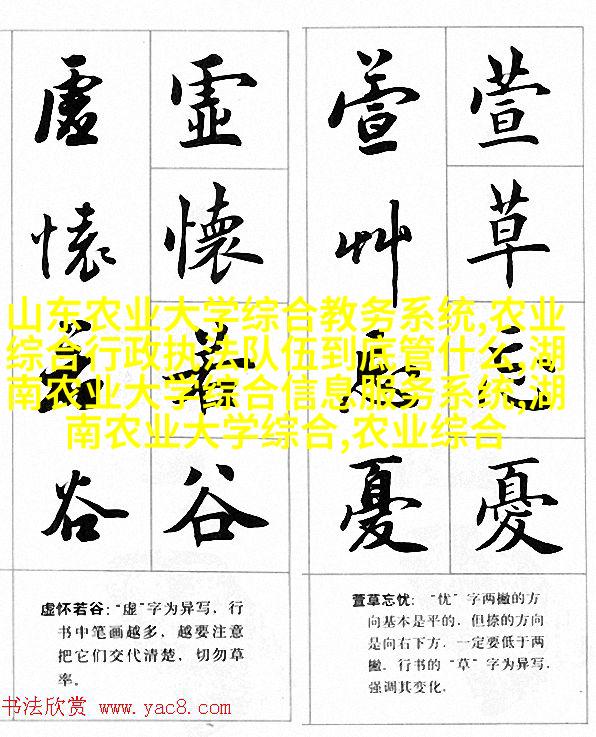 虚 虚 萱 萱
懷 懷 艸 草
若 若 忘 忘
谷 谷 憂 憂
山东农业大学综合教务系统,农业
综合行政执法队伍到底管什么,湖
南农业大学综合信息服务系统,湖
南农业大学综合,农业综合
虚怀若谷:“虚”字为异写，行
书中笔画越多，越要注意
把它们交代清楚，切勿草
率。
萱草忘忧：“忧”字两撇的方
向基本是平的，但捺的方向
是向右下方，一定要低于两
撇。行书的“草”字为异写，
强调其变化。
书法欣赏 www.yac8.com